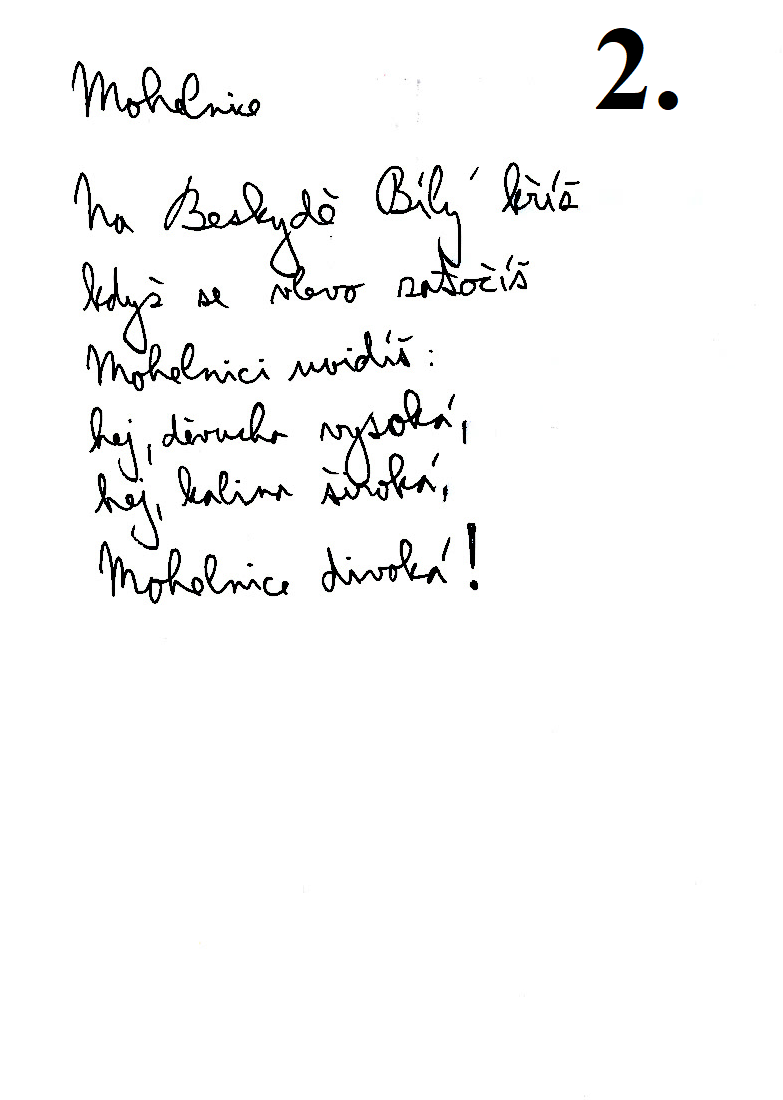 2.
Mohelnice
Na Beskydě Bílý kříž
když se vlevo zatočíš
Mohelnici uvidíš:
hej, děvucha vysoká,
hej, kalina široká,
Mohelnice divoká!